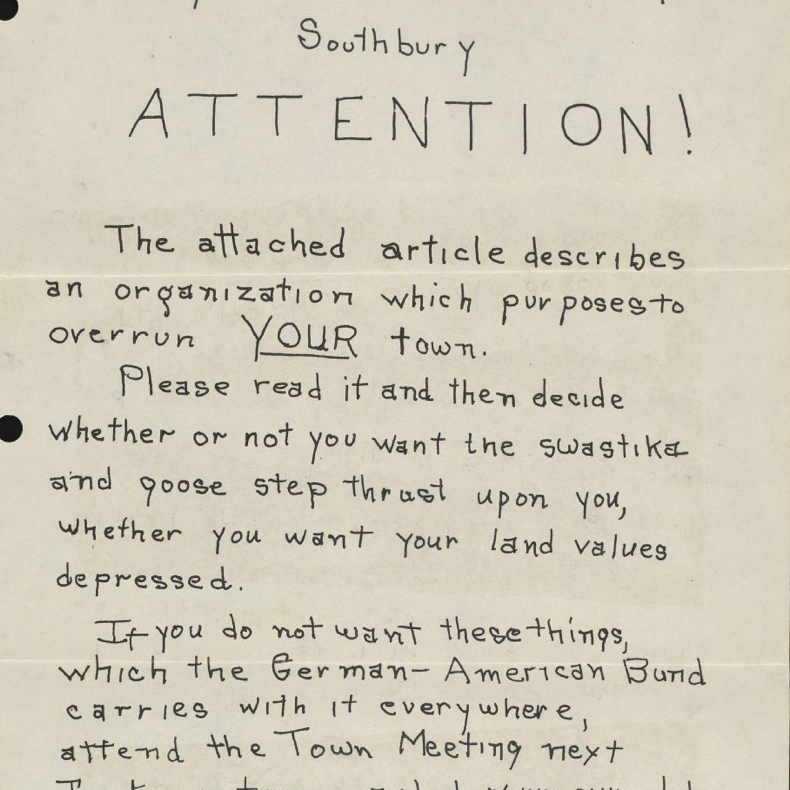 Southbury
ATTENTION!
The attached article describes
an organization which purposes to
overrun YOUR town.
Please read it and then decide
whether or not you want the swastika
and goose step thrust upon you,
whether you want your land values
depressed.
If you do not want these things,
which the German-American Bund
carries with it everywhere,
attend the Town Meeting next